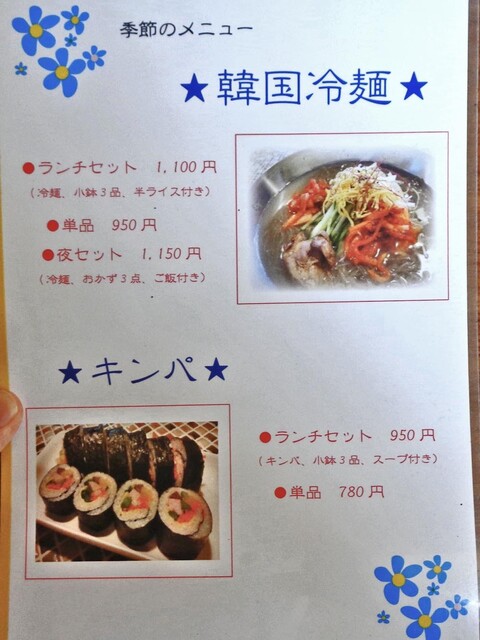 季節のメニュー
★韓国冷麺★
●ランチセット 1,100円
(冷麺、小鉢3品、半ライス付き)
●単品 950円
●夜セット 1,150円
(冷麺、おかず3点、ご飯付き)
★キンパ★
●ランチセット 950円
(キンパ、小鉢3品、スープ付き)
●単品 780円